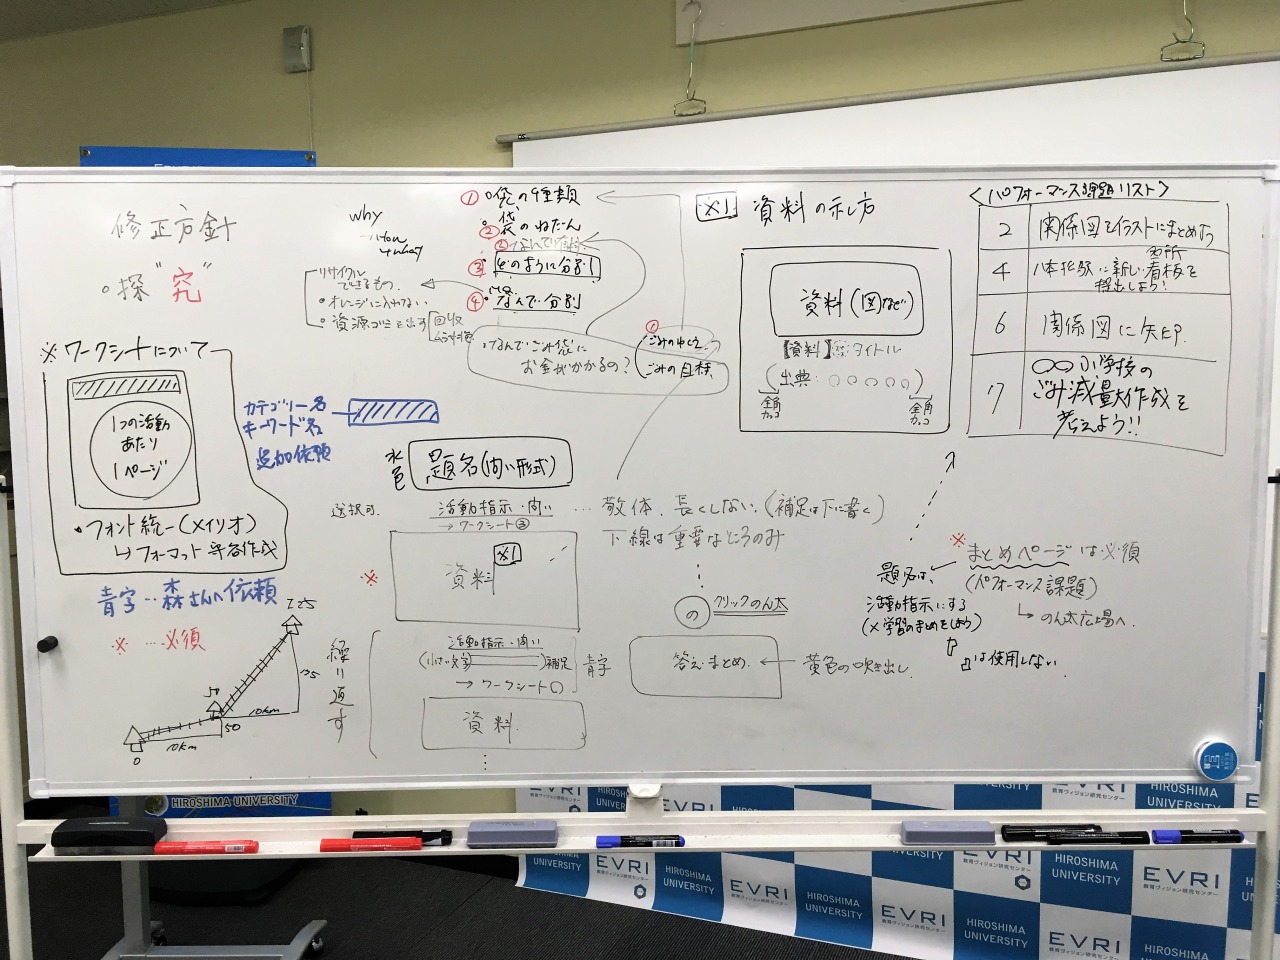 修正方針
・探"究"
※ワークシートについて
1つの活動
あたり
1ページ
・フォント統一(メイリオ)
↳フォーマット 作成
カテゴリー名
キーワード名
追加依頼
青字‥森さんへ依頼
※ …必須
0
10km
50
50
10km
125
why
→how
→what
リサイクル
できるもの
・オレンジに入れない
・資源ゴミを出す
回収
① 袋の種類
② ・袋のねだん
③ ・どのように分別
④ ・なんで分別
・なんでごみ袋に
お金がかかるの?
①
ごみのゆくえ
ごみの目標
水色
題名(問い形式)
選択可
活動指示・問い
→ワークシート②
… 敬体、長くしない(補足は下に書く)
下線は重要なところのみ
※
資料
※1
繰り返す
活動指示・問い
(小さい文字 )補足
→ワークシート○
青字
資料
⋮
の
クリックのん太
答え・まとめ
← 黄色の吹き出し
※1 資料の示し方
資料(図など)
【資料】 :タイトル
(出典:○○○○○)
全角
カッコ
全角
カッコ
題名は、
活動指示にする
(×学習のまとめをしよう)
「 」は使用しない
※まとめページは必須
(パフォーマンス課題)
↳のん太広場へ
<パフォーマンス課題リスト>
2 関係図をイラストにまとめよう
4
新しい看板を
提出しよう!
6 関係図に矢印
7 ○○小学校の
ごみ減量大作戦を
考えよう!!
HIROSHIMA UNIVERSITY
EVRI
教育ヴィジョン研究センター
HIROSHIMA
UNIVERSITY